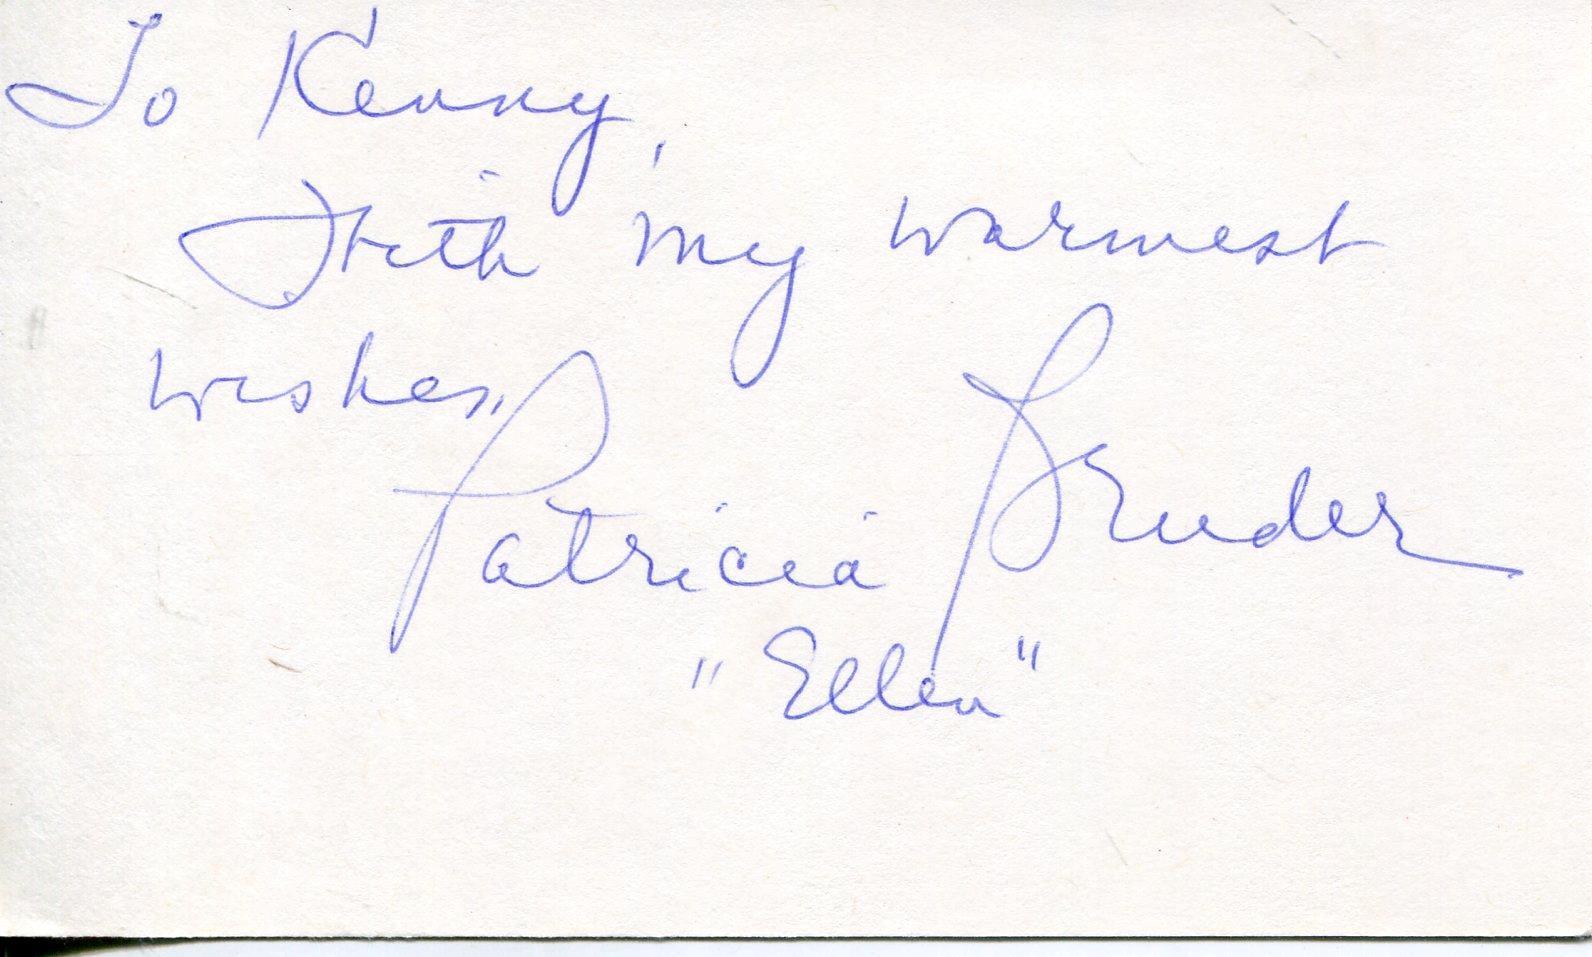 To Kenny,
With my warmest
wishes,
Patricia Bruder
"Ellen"